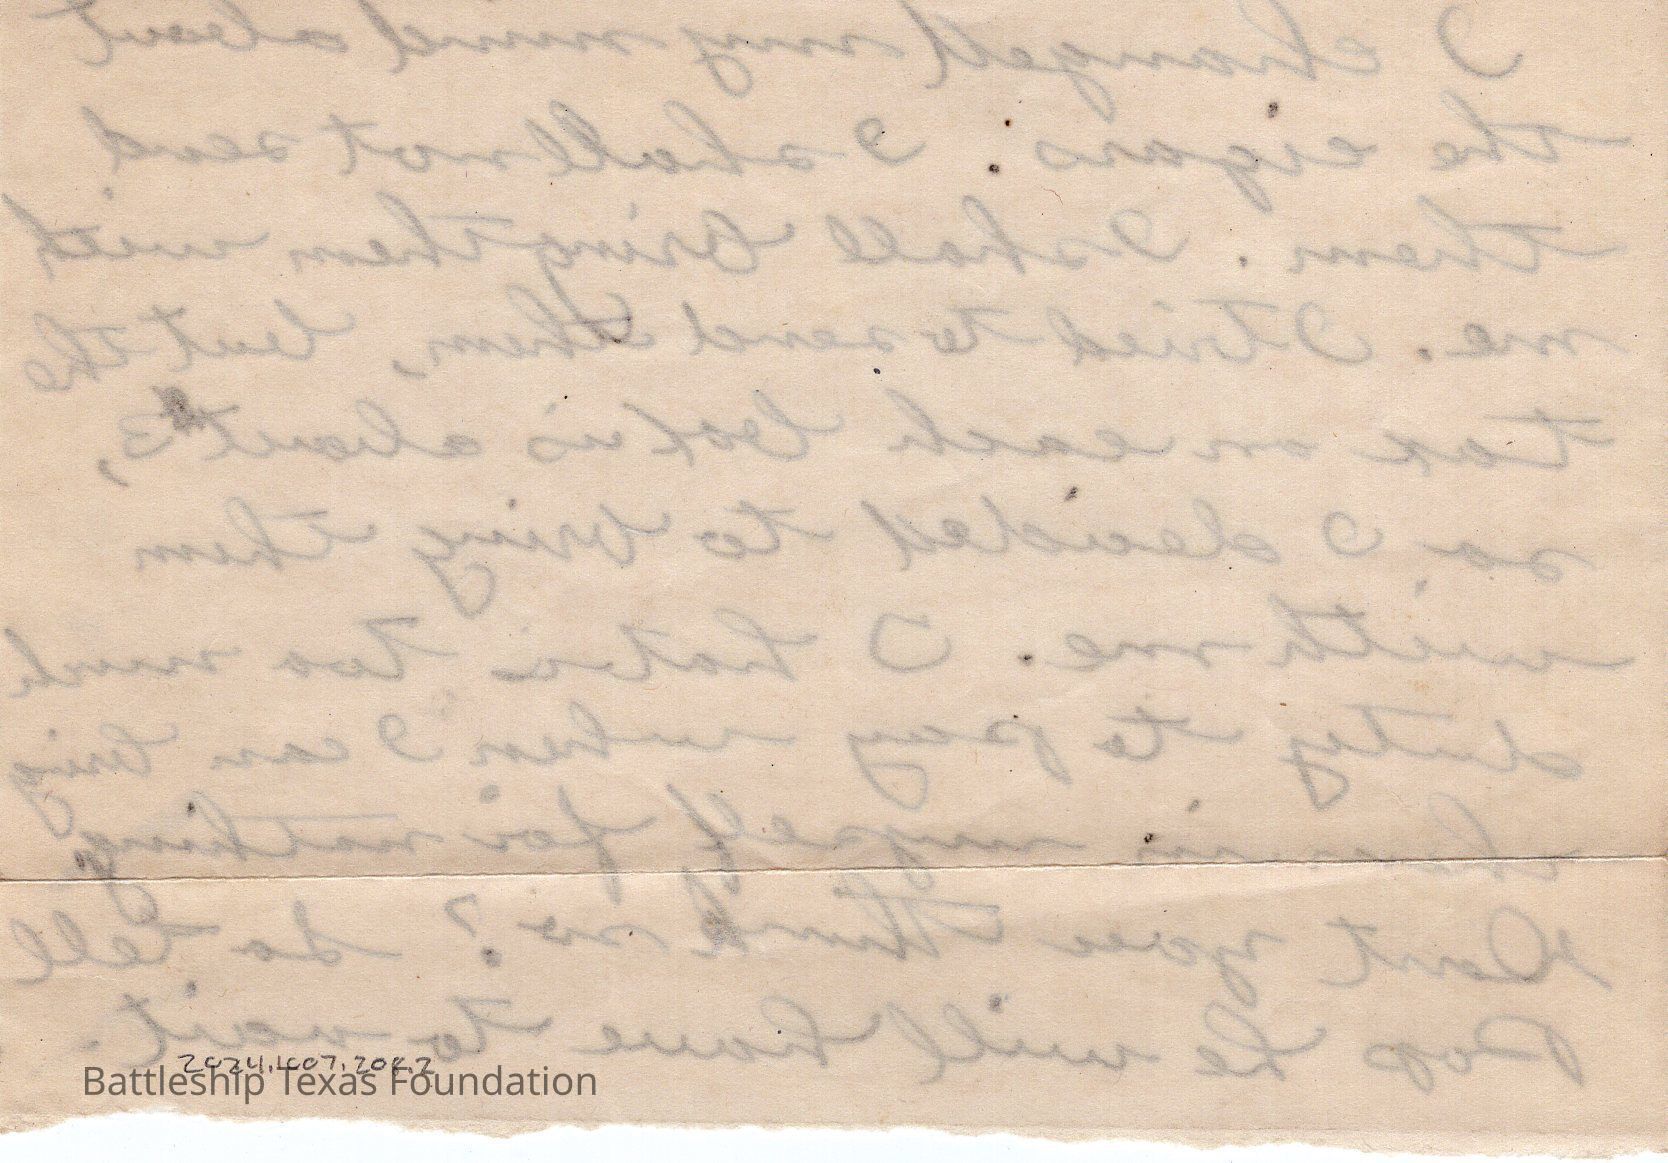 I changed my mind about
the cigars I shall not send
them. I shall bring them with
me. I tried to send them, but the
tax on each box is about 3,
so I decided to bring them
with me. I that is too much
duty to pay when I can bring
them in myself for nothing.
Dont you think so? So tell
Pop he will have to wait.
2024.1007.206.2
Battleship Texas Foundation